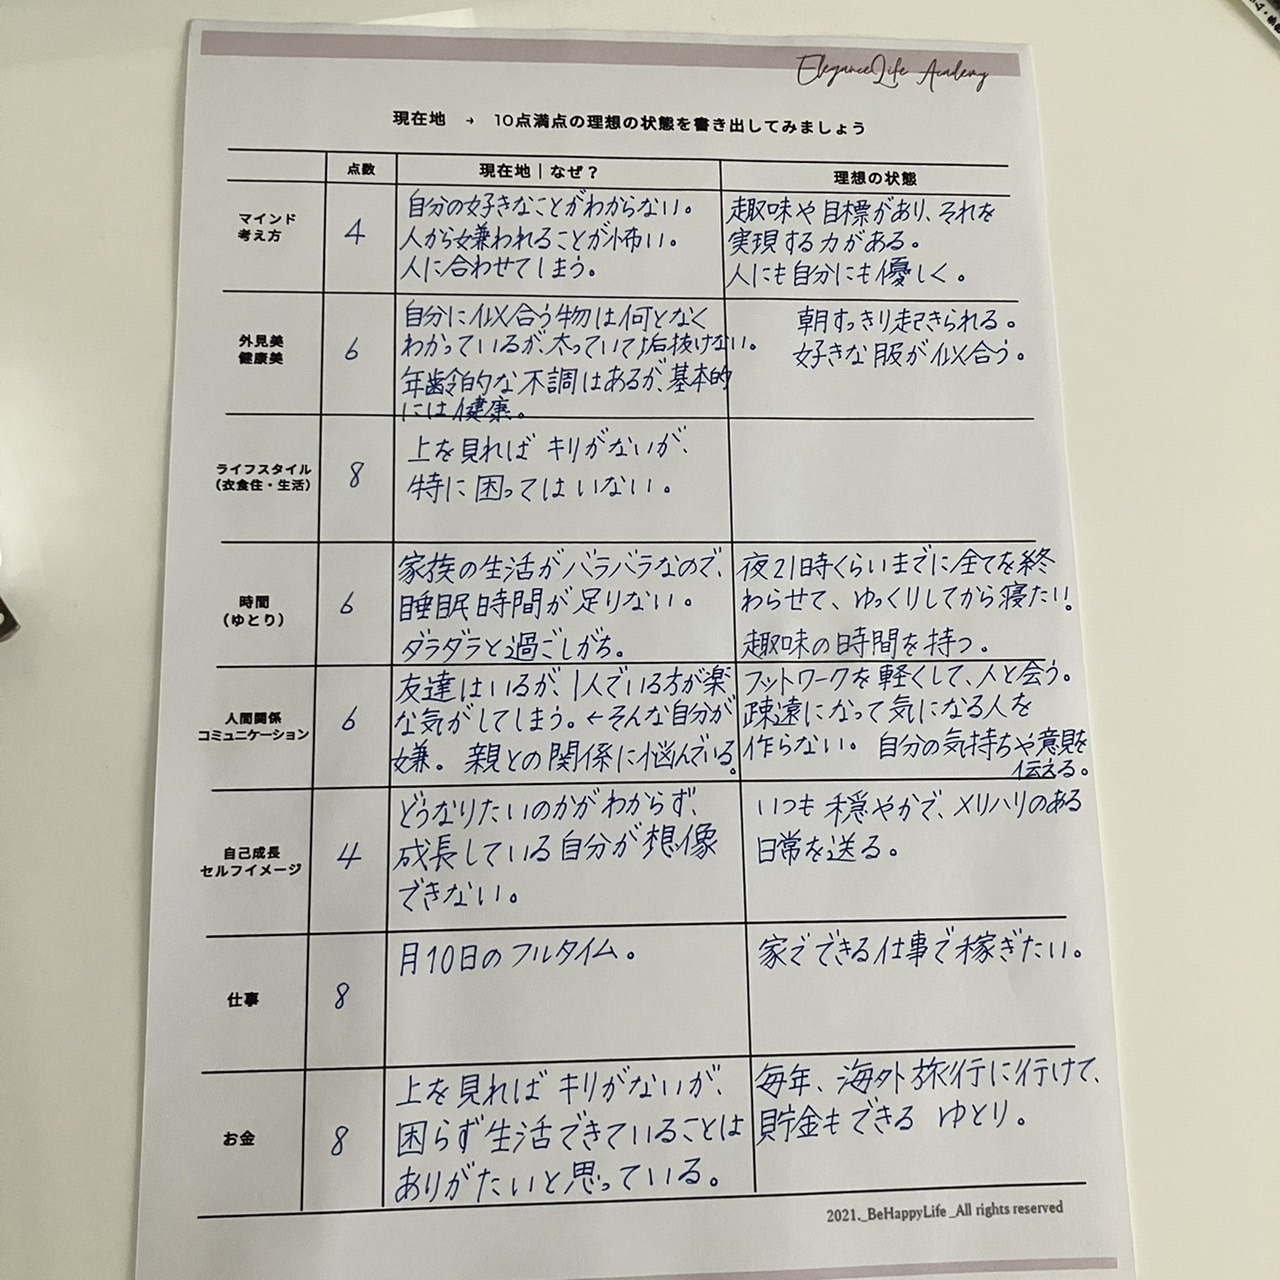 EleganceLife Academy
現在地 → 10点満点の理想の状態を書き出してみましょう
点数
現在地｜なぜ？
理想の状態
マインド
考え方
4
自分の好きなことがわからない。
人から嫌われることが怖い。
人に合わせてしまう。
趣味や目標があり、それを
実現する力がある。
人にも自分にも優しく。
外見美
健康美
6
自分に似合う物は何となく
わかっているが、太っていて垢抜けない。
年齢的な不調はあるが、基本的
には健康。
朝すっきり起きられる。
好きな服が似合う。
ライフスタイル
（衣食住・生活）
8
上を見れば キリがないが、
特に困ってはいない。
時間
（ゆとり）
6
家族の生活がバラバラなので、
睡眠時間が足りない。
ダラダラと過ごしがち。
夜21時くらいまでに全てを終
わらせて、ゆっくりしてから寝たい!
趣味の時間を持つ。
人間関係
コミュニケーション
6
友達はいるが、1人でいる方が楽
な気がしてしまう。←そんな自分が
嫌。親との関係に悩んでいる。
フットワークを軽くして、人と会う。
疎遠になって気になる人を
作らない。自分の気持ちや意見を
伝える。
自己成長
セルフイメージ
4
どうなりたいのかがわからず、
成長している自分が想像
できない。
いつも穏やかで、メリハリのある
日常を送る。
仕事
8
月10日のフルタイム。
家でできる仕事で稼ぎたい。
お金
8
上を見れば キリがないが、
困らず生活できていることは
ありがたいと思っている。
毎年、海外旅行に行けて、
貯金もできる ゆとり。
2021._BeHappyLife_All rights reserved